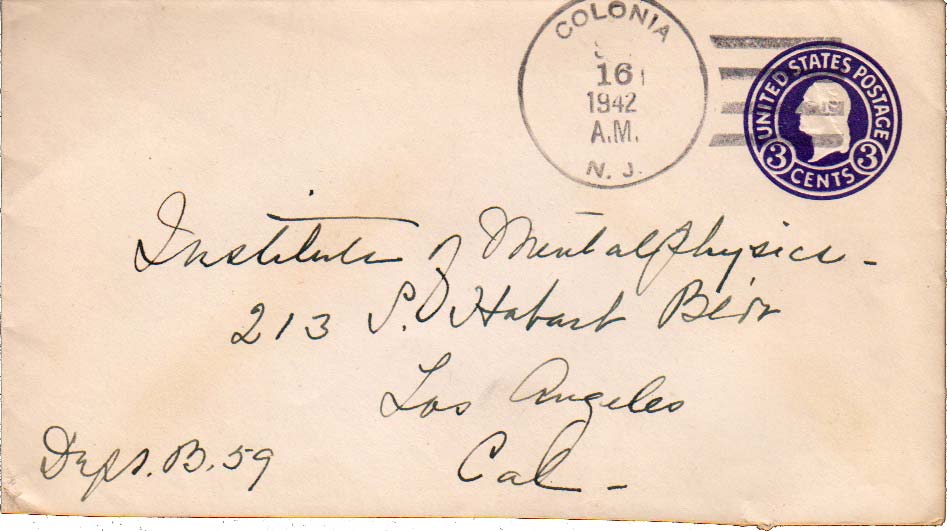 COLONIA
16
1942
A.M.
N. J.
UNITED STATES POSTAGE
3 CENTS 3
Institute of Mentalphysics -
213 S. Hobart Blvd
Los Angeles
Cal -
Dept. B. 59